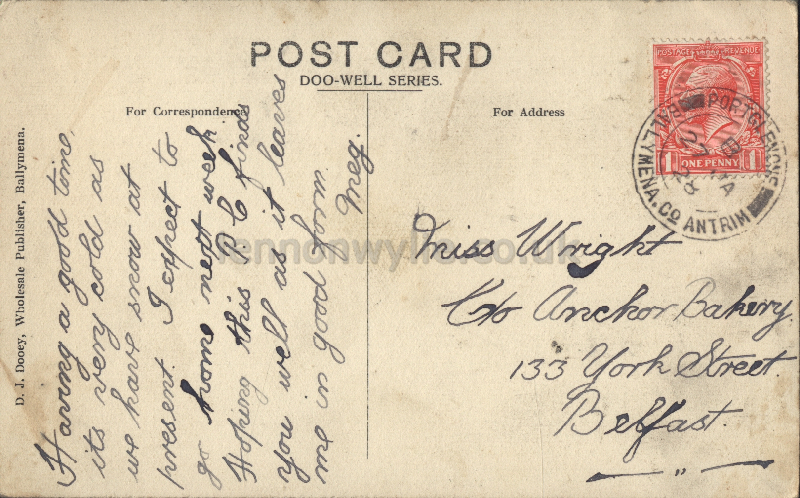 POST CARD
DOO-WELL SERIES.
For Correspondence
For Address
D. J. Dooey, Wholesale Publisher, Ballymena.
Having a good time
its very cold as
we have snow at
present. I expect to
go home next week
Hoping this P C finds
you well as it leaves
me in good form
Meg.
Miss Wright
C/o Anchor Bakery
133 York Street.
Belfast.
POSTAGE REVENUE
1 ONE PENNY 1
PORTGLENONE
BALLYMENA. CO ANTRIM
28
lennonwylie.co.uk